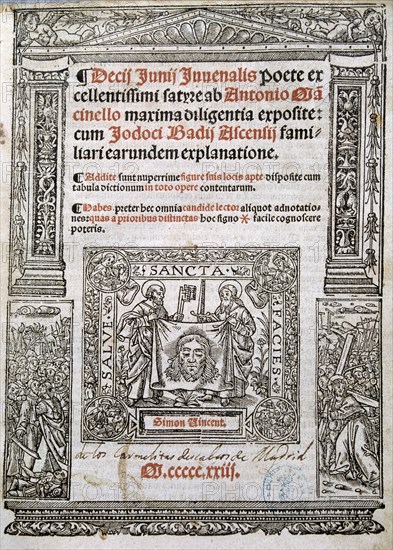 ¶ Decij Junij Juuenalis poete ex
cellentissimi satyre ab Antonio Mā
cinello maxima diligentia exposite:
cum Jodoci Badij Ascensij fami-
liari earundem explanatione.
¶ Addite sunt nuperrime figure suis locis apte disposite cum
tabula dictionum in toto opere contentarum.
¶ Habes preter hec omnia candide lector aliquot adnotatio-
nes: quas a prioribus distinctas hoc signo ⚹ facile cognoscere
poteris.
SANCTA
SALVE
FACIES
Simon Vincent.
de los Carmelitas Descalços de Madrid
M.ccccc.xxiij.